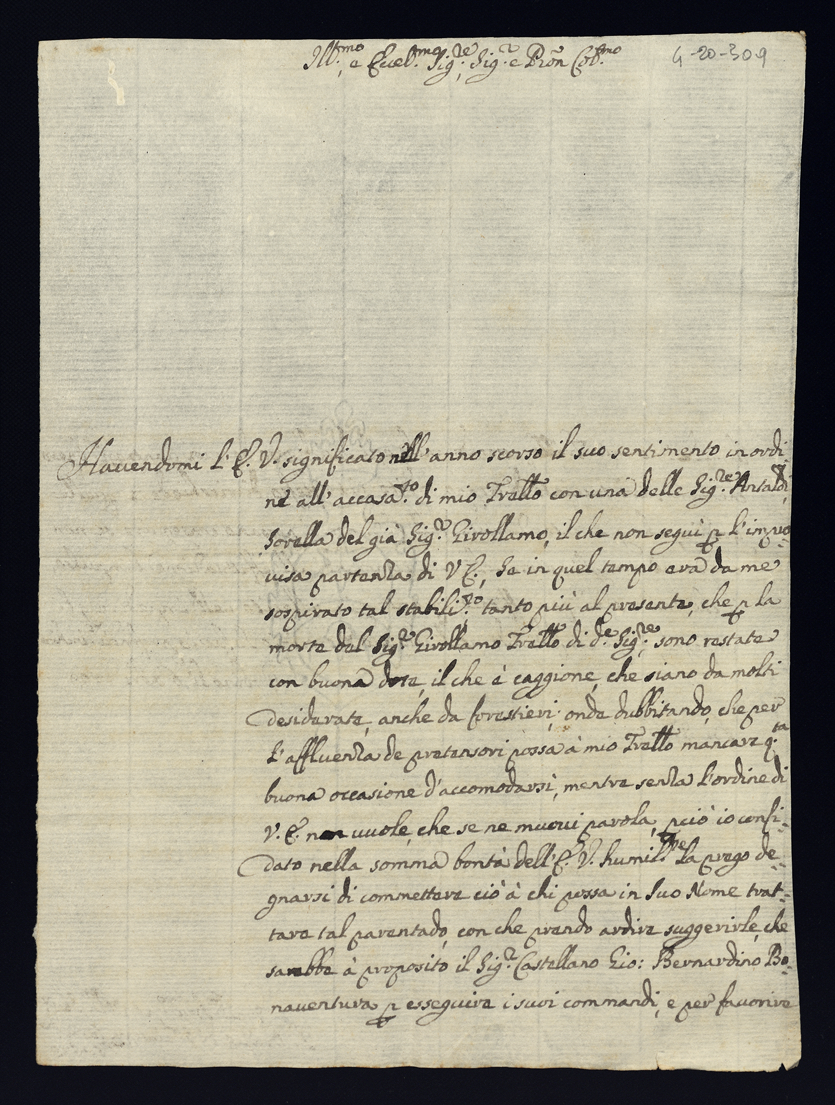 Ill.mo e Eccel.mo Sig.re, Sig.r e Pron Col.mo
4-20-309
Havendomi l'E. V. significato nell'anno scorso il suo sentimento in ordi-
ne all'accasa.to di mio Fratello con una delle Sig.re Ansaldi,
Sorella del gia Sig.r Girollamo, il che non seguì p l'impro-
visa partenza di V E., Se in quel tempo era da me
sospirato tal stabili.to tanto più al presente, che p la
morte del Sig.r Girollamo Fratello di de Sig.re, sono restate
con buona dote, il che è caggione, che siano da molti
desiderate, anche da forestieri; onde dubbitando, che per
l'affluenza de pretensori possa à mio Fratello mancare q.ta
buona occasione d'accomodarsi, mentre senza l'ordine di
V. E. non vuole, che se ne muovi parola, pciò io confi-
dato nella somma bontà dell'E. V. humil.te la prego de-
gnarsi di commettere ciò à chi possa in Suo Nome trat-
tare tal parentado, con che prendo ardire suggerirle, che
sarebbe à proposito il Sig.r Castellano Gio: Bernardino Bo-
naventura p esseguire i suoi commandi, e per favorire